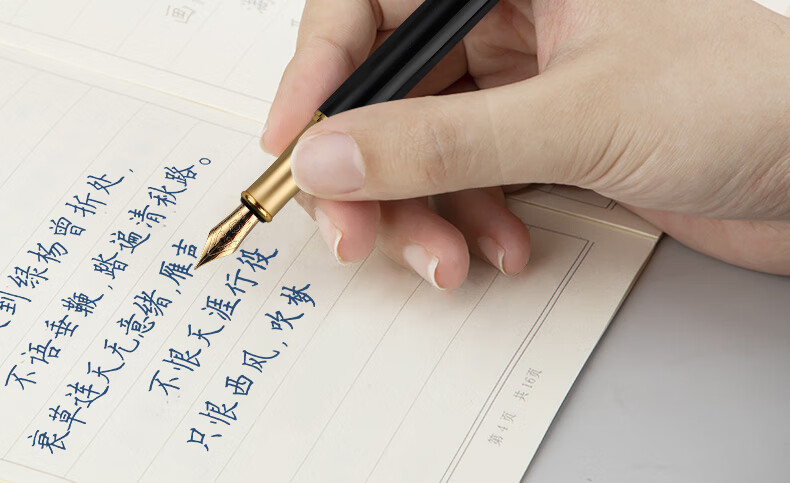 到绿杨曾折处,
不语垂鞭,踏遍清秋路。
衰草连天无意绪,雁
不恨天涯行役
只恨西风,吹梦
第 4 页 共 16页